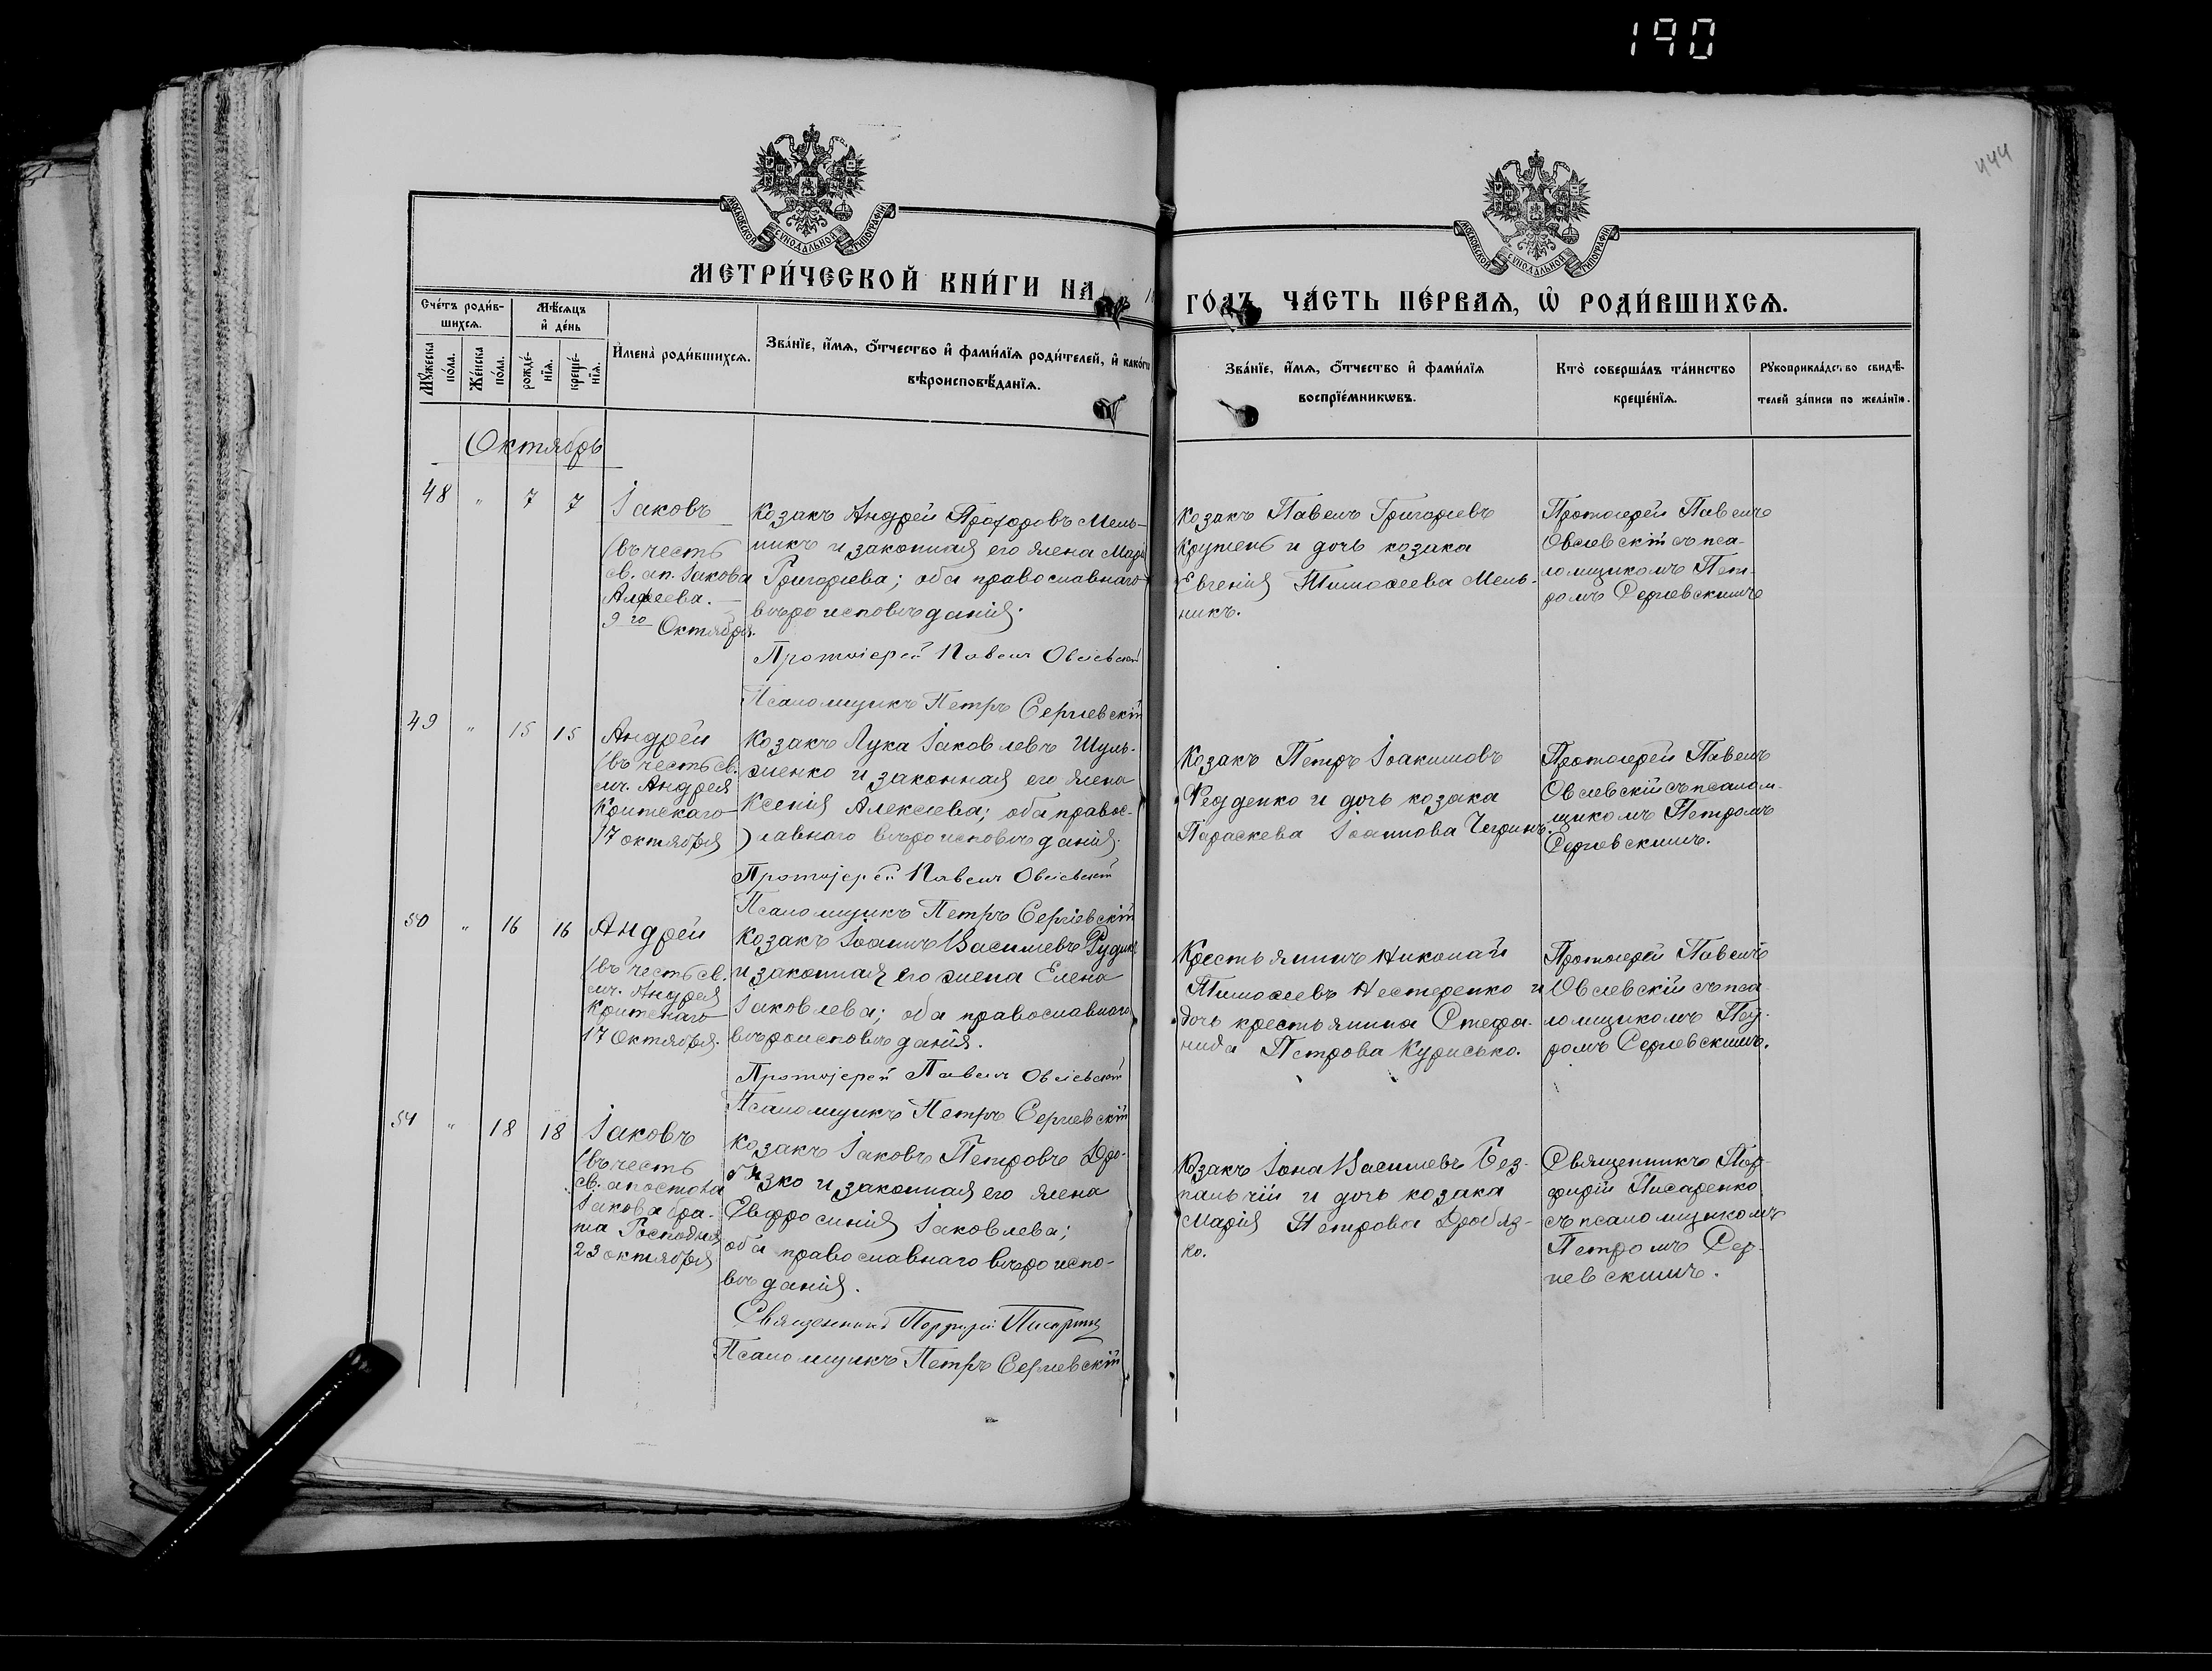 190
444
МОСКОВСКОЙ СѴНОДАЛЬНОЙ ТИПОГРАФІИ
МОСКОВСКОЙ СѴНОДАЛЬНОЙ ТИПОГРАФІИ
МЕТРИ́ЧЕСКОЙ КНИ́ГИ НА
ГО́ДЪ ЧА́СТЬ ПЕ́РВАѦ, Ѽ РОДИ́ВШИХСѦ.
Сче́тъ роди́в-
шихсѧ.
Мѣ́сѧцъ
и҆ де́нь
Мꙋ́жеска
по́ла.
Же́нска
по́ла.
рожде́-
нїѧ.
креще́-
нїѧ.
И҆мена̀ роди́вшихсѧ.
Зва́нїе, и҆́мѧ, ѻ҆́тчество и҆ фами́лїѧ роди́телей, и҆ како́гѡ
вѣроисповѣ́данїѧ.
Зва́нїе, и҆́мѧ, ѻ҆́тчество и҆ фами́лїѧ
воспрїе́мникѡвъ.
Кто̀ соверша́лъ та́инство
креще́нїѧ.
Рꙋкоприкла́дство свидѣ́-
телей за́писи по жела́нїю.
Октябрь
48 " 7 7
Іаковъ
(въ честь
св. ап. Іакова
Алфеева.
9го Октября.
Козакъ Андрей Прохоровъ Мель-
никъ и законная его жена Марія
Григоріева; оба православнаго
вѣроисповѣданія.
Протоіерей Павелъ Овсіевскій
Псаломщикъ Петръ Сергіевскій
Козакъ Павелъ Григоріевъ
Крутень и дочь козака
Евгенія Тимоѳеева Мель-
никъ.
Протоіерей Павелъ
Овсіевскій съ пса-
ломщикомъ Пет-
ромъ Сергіевскимъ
49 " 15 15
Андрей
(въ честь св.
мч. Андрея
Критскаго
17 октября
Козакъ Лука Іаковлевъ Шуль-
женко и законная его жена
Ксенія Алексіева; оба правос-
лавнаго вѣроисповѣданія.
Протоіерей Павелъ Овсіевскій
Псаломщикъ Петръ Сергіевскій
Козакъ Петръ Іоакимовъ
Федденко и дочь козака
Параскева Іоаннова Чегринъ.
Протоіерей Павелъ
Овсіевскій съ псалом-
щикомъ Петромъ
Сергіевскимъ.
50 " 16 16
Андрей
(въ честь св.
мч. Андрея
Критскаго
17 Октября.
Козакъ Іоаннъ Василіевъ Рудикъ
и законная его жена Елена
Іаковлева; оба православнаго
вѣроисповѣданія.
Протоіерей Павелъ Овсіевскій
Псаломщикъ Петръ Сергіевскій
Крестьянинъ Николай
Тимоѳеевъ Нестеренко и
дочь крестьянина Стефа-
нида Петрова Курисько.
Протоіерей Павелъ
Овсіевскій съ пса-
ломщикомъ Пет-
ромъ Сергіевскимъ.
51 " 18 18
Іаковъ
(въ честь
св. апостола
Іакова бра-
та Господня
23 октября
Козакъ Іаковъ Петровъ Дро-
бязко и законная его жена
Евфросинія Іаковлева;
оба православнаго вѣроиспо-
вѣданія.
Священникъ Порфирій Писаренко
Псаломщикъ Петръ Сергіевскій
Козакъ Іона Василіевъ Без-
пальчій и дочь козака
Марія Петрова Дробяз-
ко.
Священникъ Пор-
фирій Писаренко
съ псаломщикомъ
Петромъ Сер-
гіевскимъ.